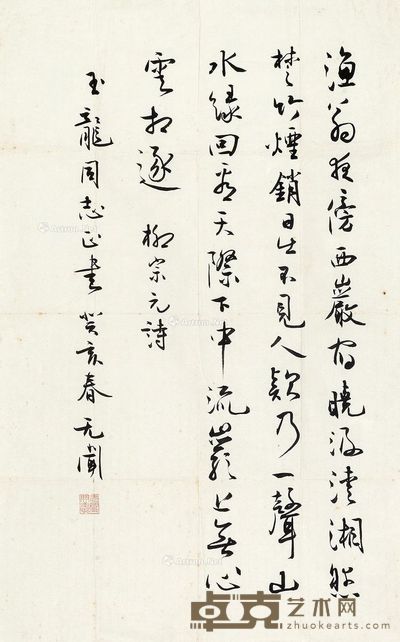 漁翁夜傍西巖宿曉汲清湘燃
楚竹煙銷日出不見人欸乃一聲山
水綠回看天際下中流巖上無心
雲相逐 柳宗元詩
玉龍同志正書 癸亥春 无聞
卓克艺术网
www.zhuokearts.com